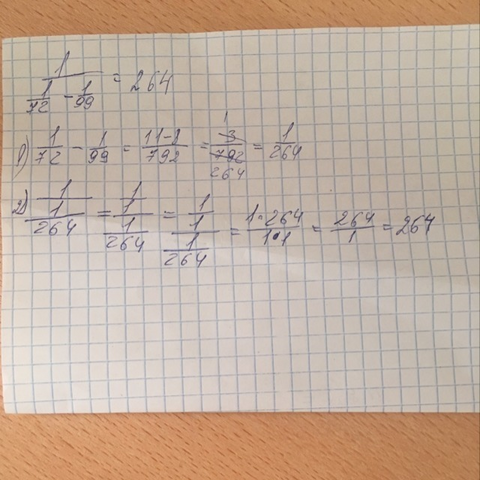 1/(1/72 - 1/99) = 264
1) 1/72 - 1/99 = (11-8)/792 = 3/792 = 1/264
2) 1/(1/264) = (1/1)/(1/264) = (1/1)/(1/264) = (1·264)/(1·1) = 264/1 = 264